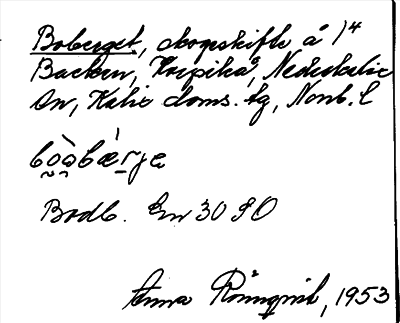 Boberget, skogskifte å 1⁴
Backen, Korpikå, Nederkalix
sn, Kalix doms. tg, Nonb. l
bo̯òbæ̀rjə
Bodb. Em 30 90
Anna Rönnqvist, 1953